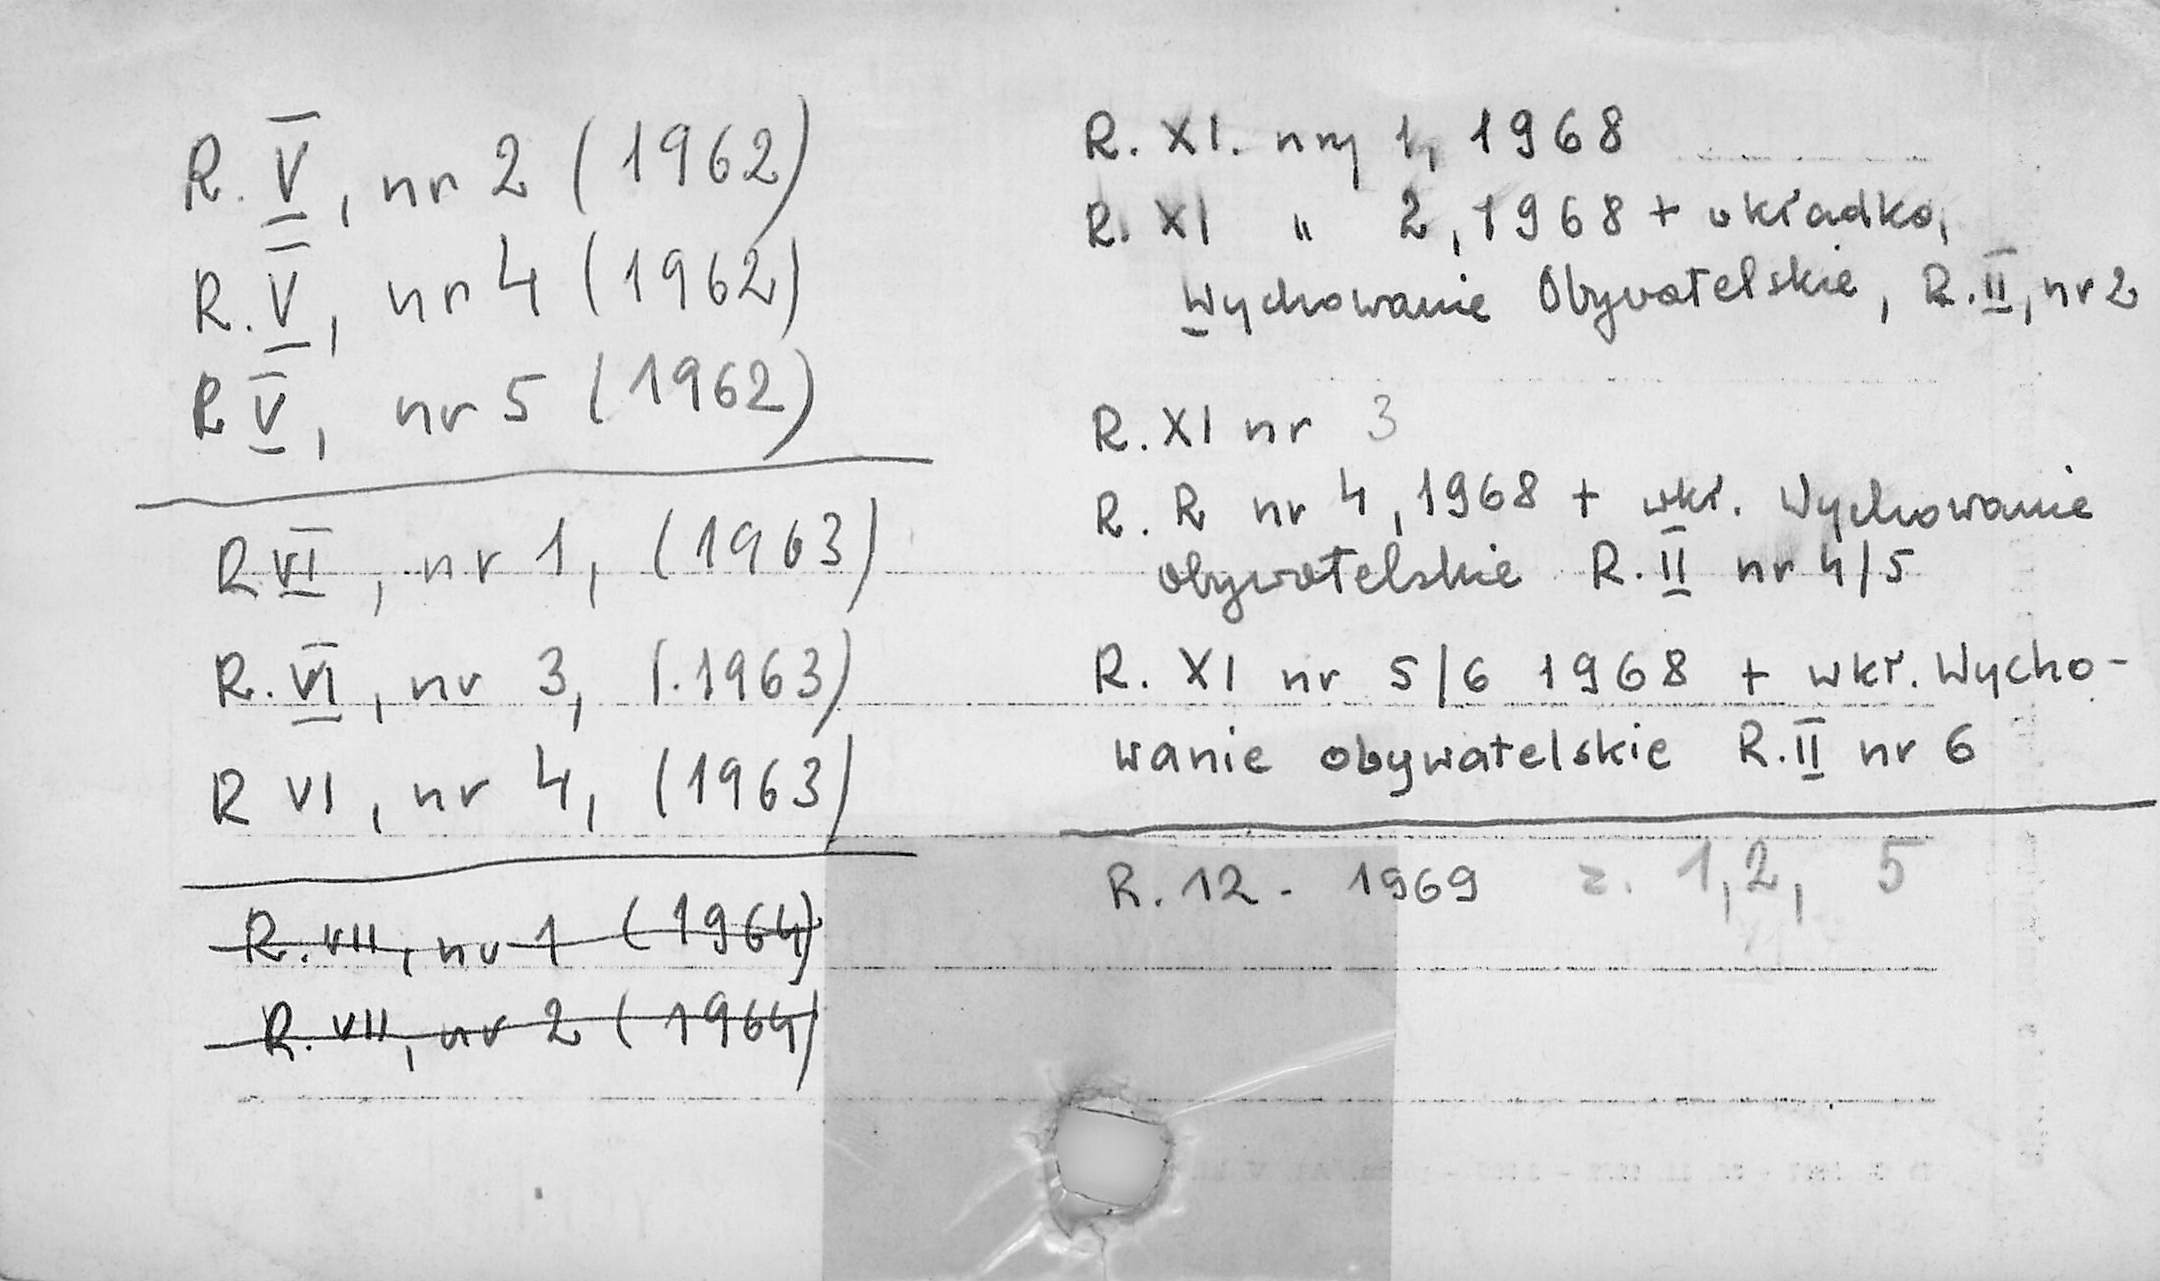 R. V, nr 2 (1962)
R. V, nr 4 (1962)
R V, nr 5 (1962)
R VI, nr 1, (1963)
R. VI, nr 3, (1963)
R VI, nr 4, (1963)
R. VII, nr 1 (1964)
R. VII, nr 2 (1964)
R. XI. nry 1, 1968
R. XI " 2, 1968 + wkładka,
Wychowanie Obywatelskie, R. II, nr 2
R. XI nr 3
R. R nr 4, 1968 + wkł. Wychowanie
obywatelskie R. II nr 4/5
R. XI nr 5/6 1968 + wkł. Wycho-
wanie obywatelskie R. II nr 6
R. 12 - 1969 z. 1, 2, 5